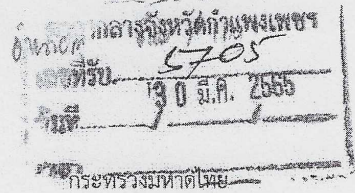 ศาลากลางจังหวัดกำแพงเพชร
เลขที่รับ 5705
วันที่ 30 มี.ค. 2555
กระทรวงมหาดไทย